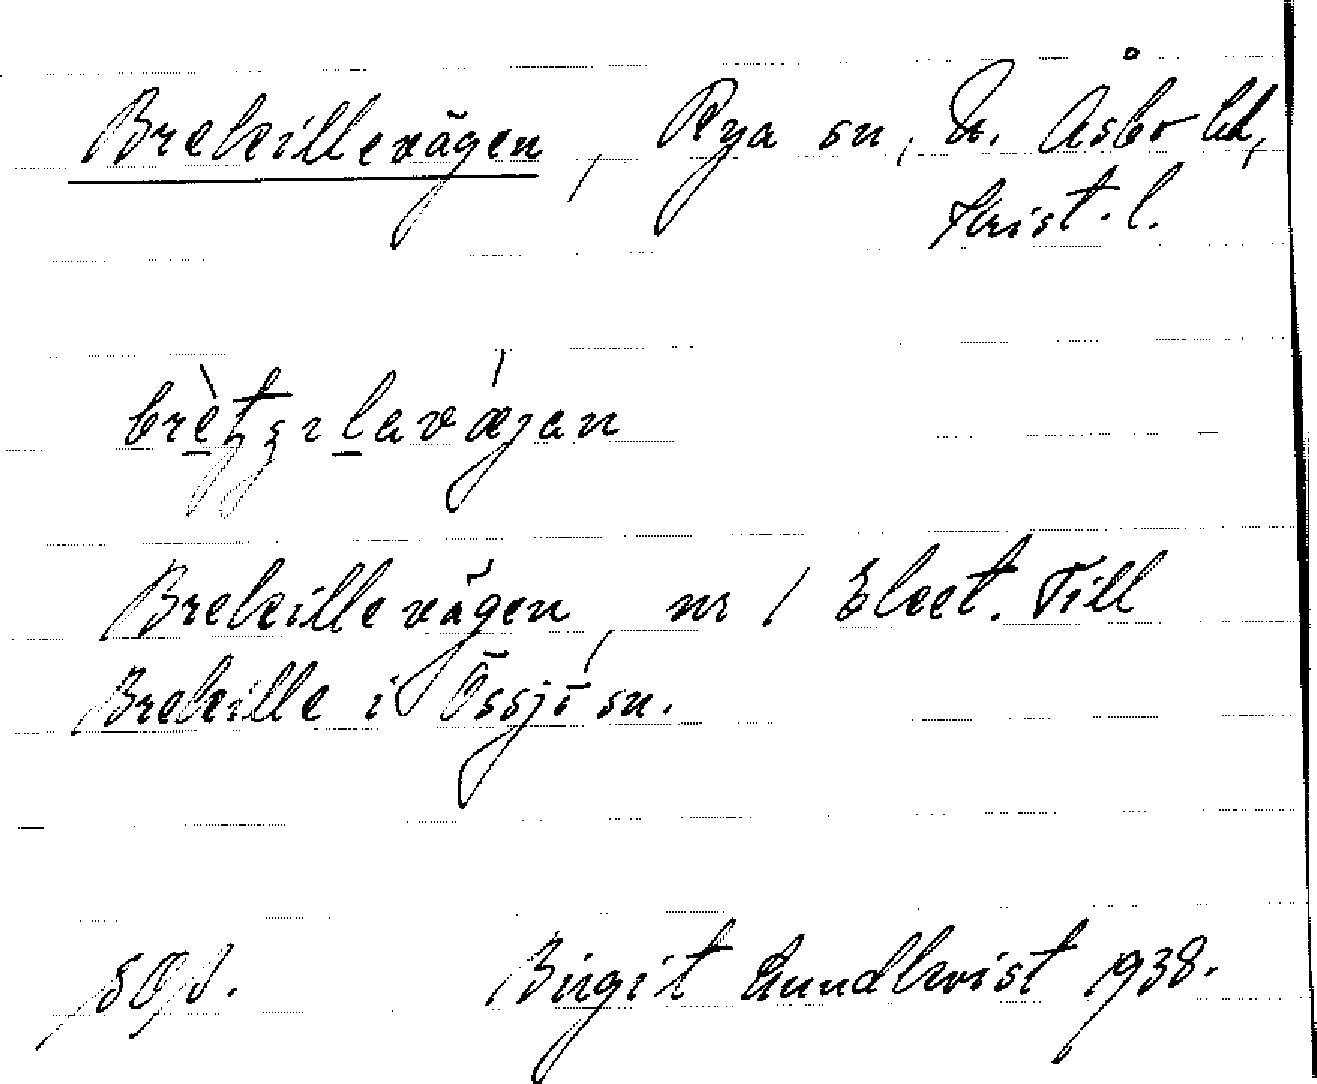 Brekillevägen, Rya sn, N. Åsbo hd,
Krist. l.
Brekillevägen, nr 1 Eket. Till
Brekille i Össjö sn.
Birgit Lundkvist 1938.